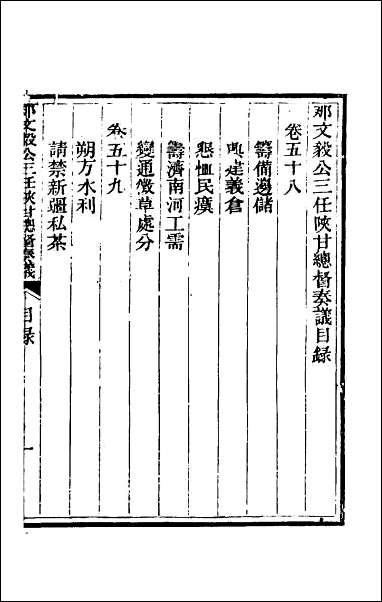 那文毅公三任陜甘總督奏議目錄
卷五十八
籌備邊儲
興建義倉
懇恤民瘼
籌濟南河工需
變通徵草處分
卷五十九
朔方水利
請禁新疆私茶
那文毅公三任陜甘總督奏議
目錄
一